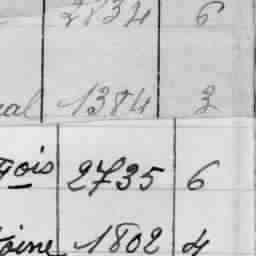 2734 6
al 1384 3
çois 2735 6
toine 1802 4